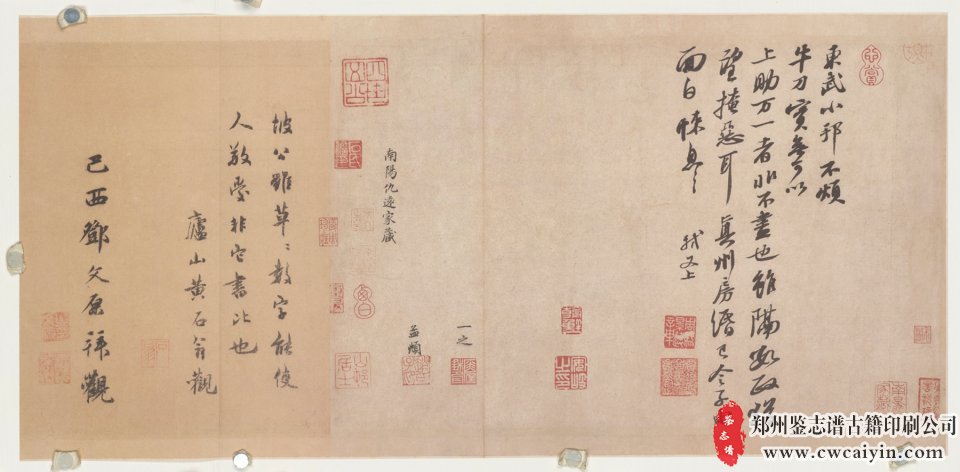 東武小邦不煩
牛刀實無可以
上助万一者非不盡也雖隔數政猶
望掩惡耳 真州房緡已令子
面白悚息〻
軾又上
一之
南陽仇遠家藏
坡公雖草〻數字能使
人敬愛非它書比也
廬山黄石翁觀
己酉鄧文原拜觀
鉴志谱
郑州鉴志谱古籍印刷公司
www.cwcaiyin.com